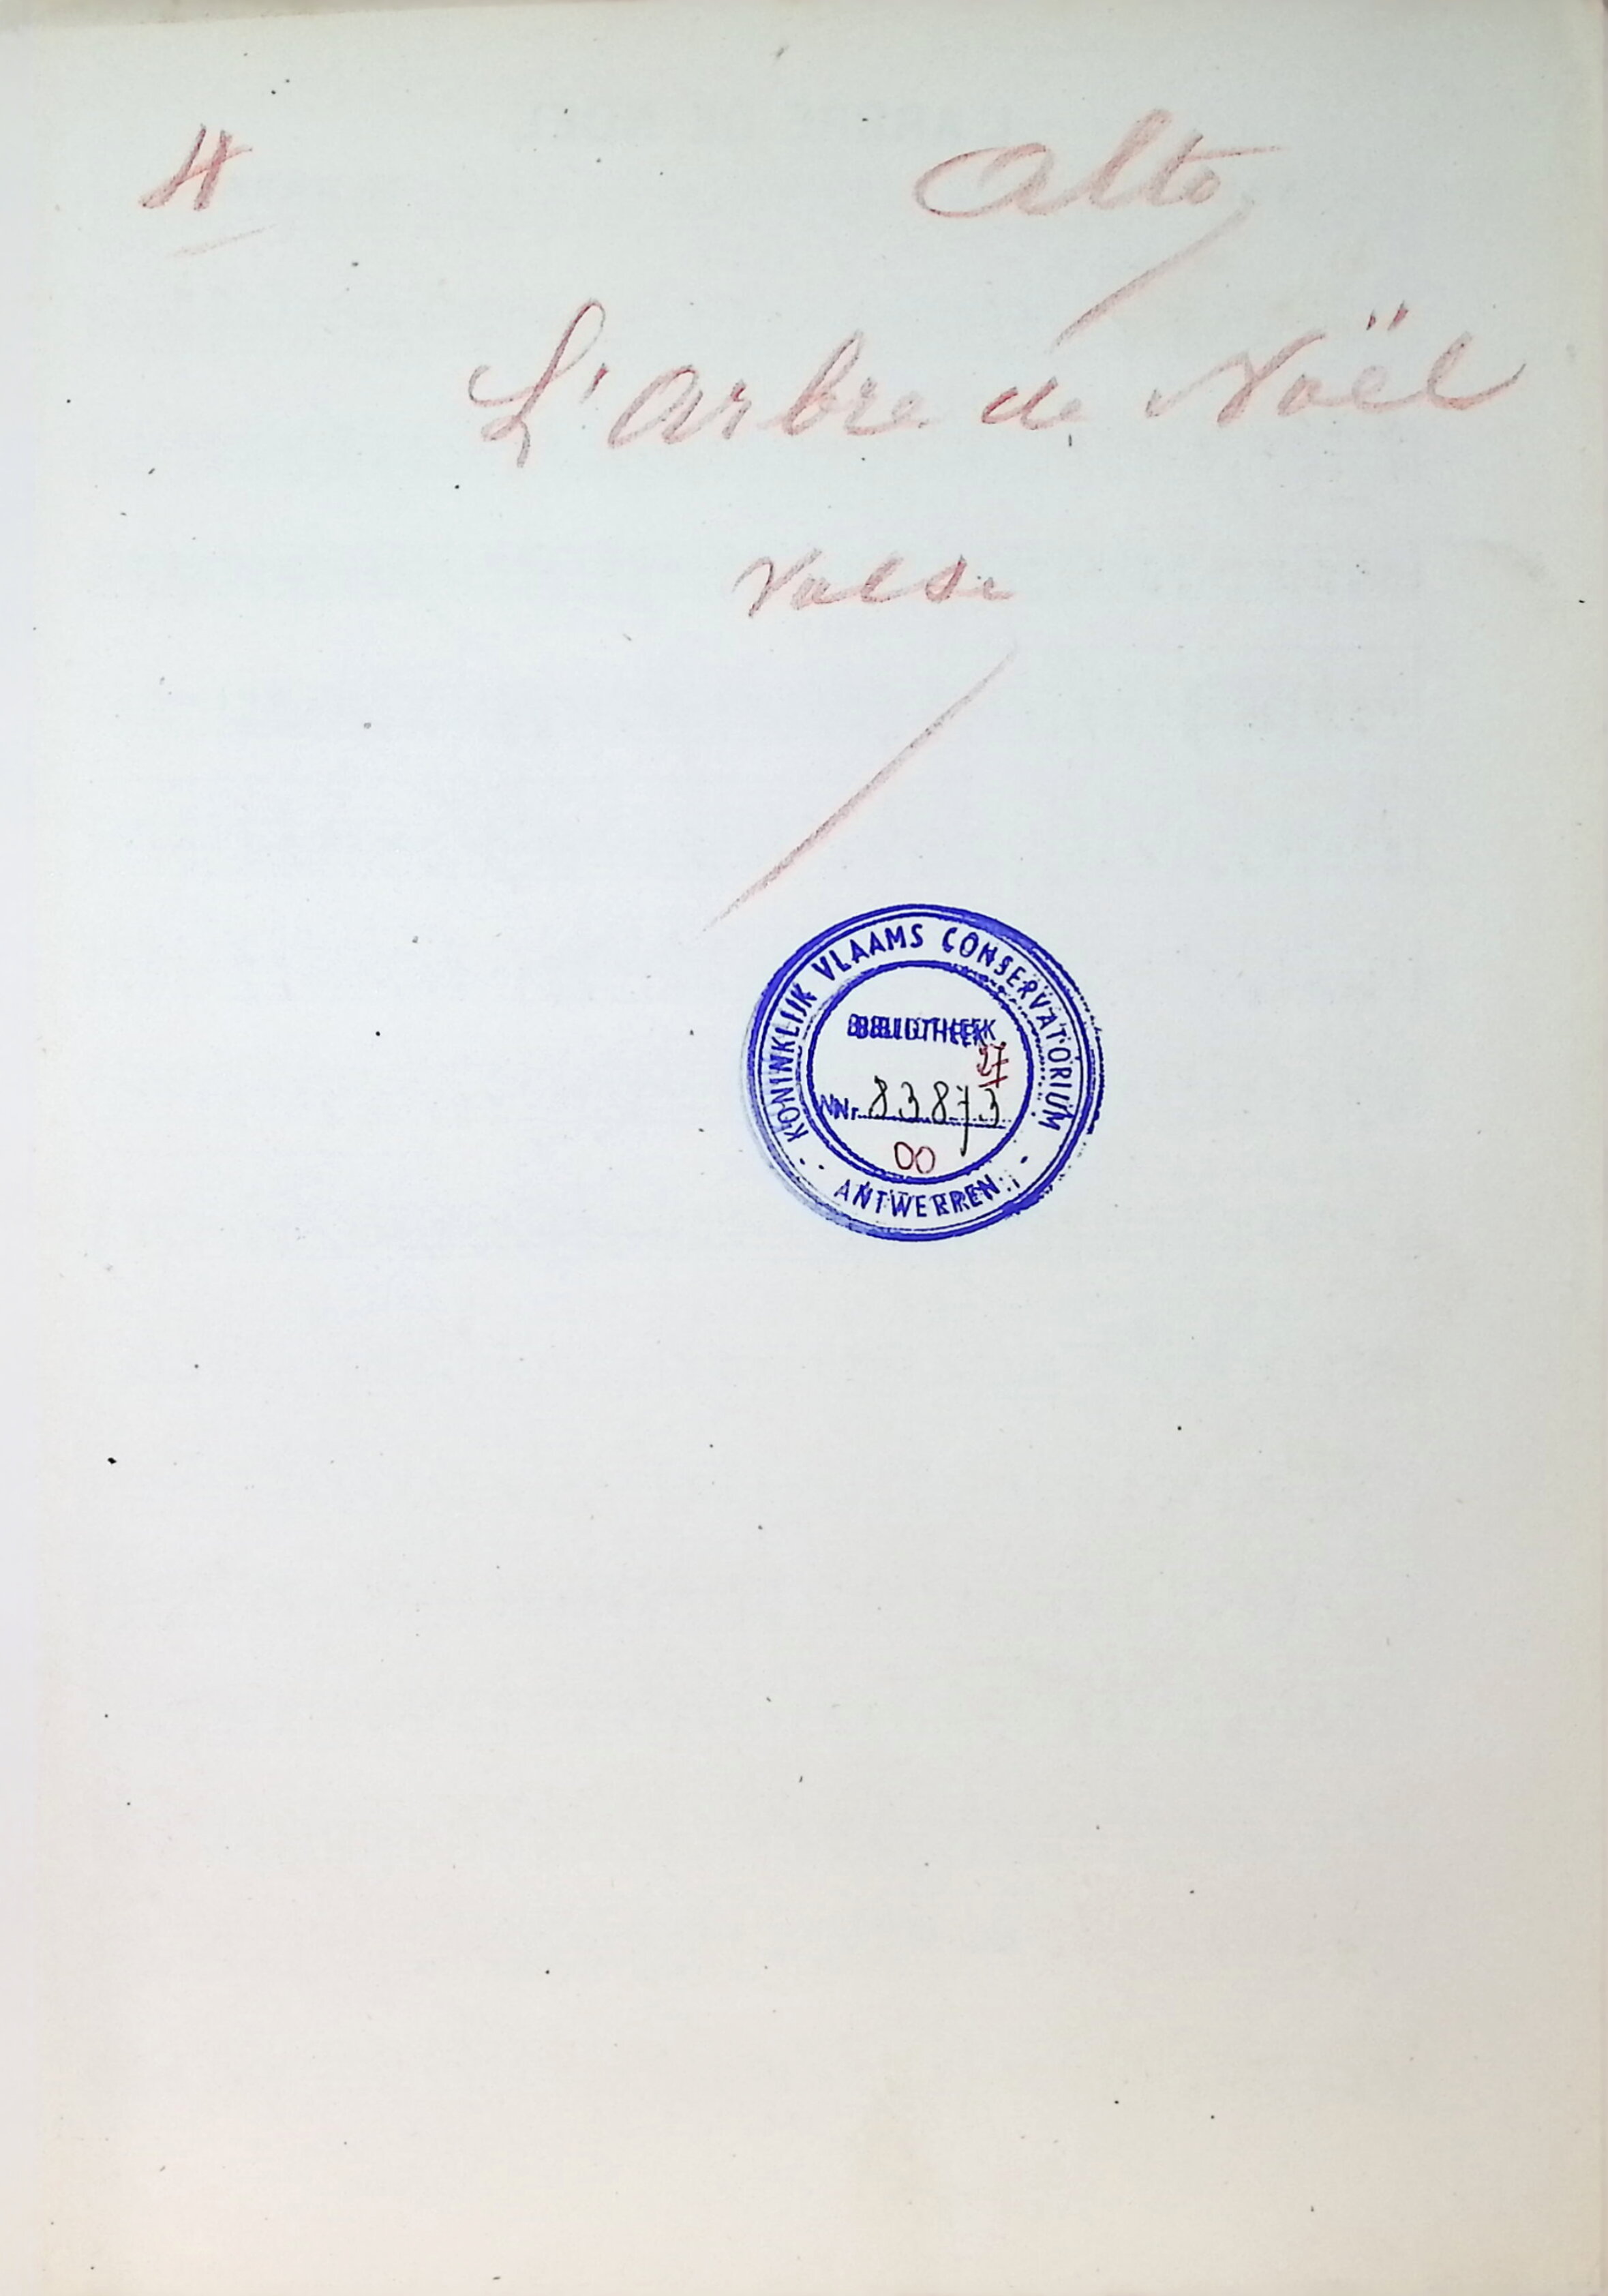 4 Alto
L'arbre de Noël
Valse
KONINKLIJK VLAAMS CONSERVATORIUM
BIBLIOTHEEK
27
Nr. 83873
00
ANTWERPEN